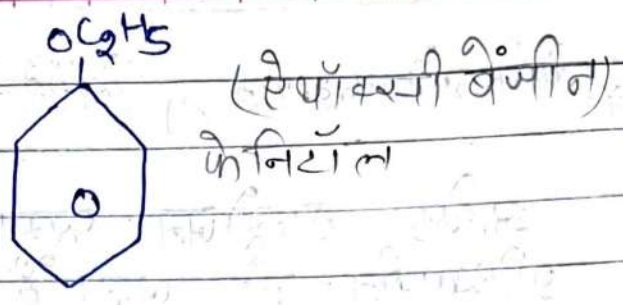 OC2H5
(ऐथॉक्सी बेंजीन)
फेनिटॉल